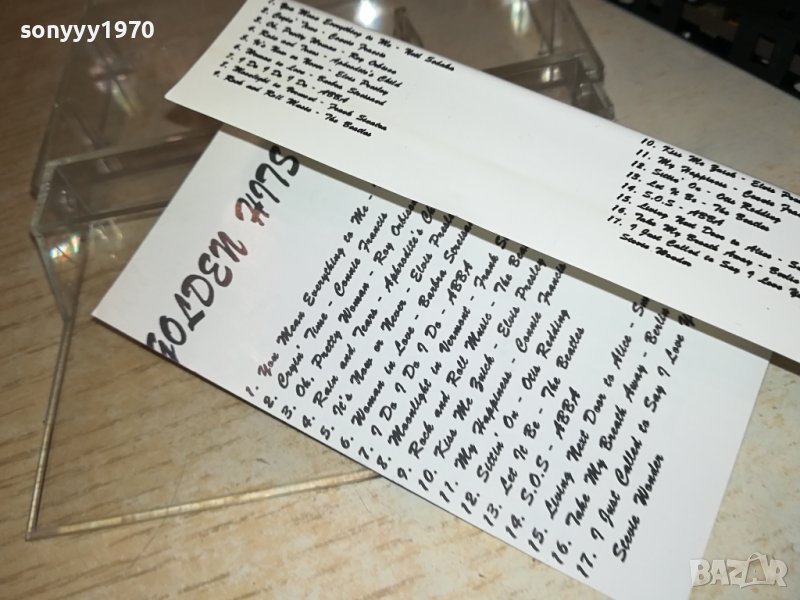 sonyyy1970
1. You Mean Everything to Me - Neil Sedaka
2. Cryin' Time - Connie Francis
3. Oh, Pretty Woman - Roy Orbison
4. Rain and Tears - Aphrodite's Child
5. It's Now or Never - Elvis Presley
6. Woman in Love - Barbra Streisand
7. I Do I Do I Do - ABBA
8. Moonlight in Vermont - Frank Sinatra
9. Rock and Roll Music - The Beatles
10. Kiss Me Quick - Elvis
11. My Happyness - Connie
12. Sittin' On - Otis Redding
13. Let It Be - The Beatles
14. S.O.S - ABBA
15. Living Next Door to Alice -
16. Take My Breath Away - Berlin
17. I Just Called to Say I Love
Stevie Wonder
GOLDEN HITS
1. You Mean Everything to Me -
2. Cryin' Time - Connie Francis
3. Oh, Pretty Woman - Roy Orbison
4. Rain and Tears - Aphrodite's
5. It's Now or Never - Elvis
6. Woman in Love - Barbra
7. I Do I Do I Do - ABBA
8. Moonlight in Vermont - Frank
9. Rock and Roll Music - The
10. Kiss Me Quick - Elvis Presley
11. My Happyness - Connie Francis
12. Sittin' On - Otis Redding
13. Let It Be - The Beatles
14. S.O.S - ABBA
15. Living Next Door to Alice -
16. Take My Breath Away - Berlin
17. I Just Called to Say I Love
Stevie Wonder
BAZAR